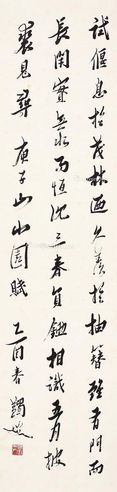 試偃息於茂林迺久羨於抽簪雖有門而
長閉實無水而恆沈三春負鋤相識五月披
裘見尋 庾子山小園賦 乙酉春 蠲叟